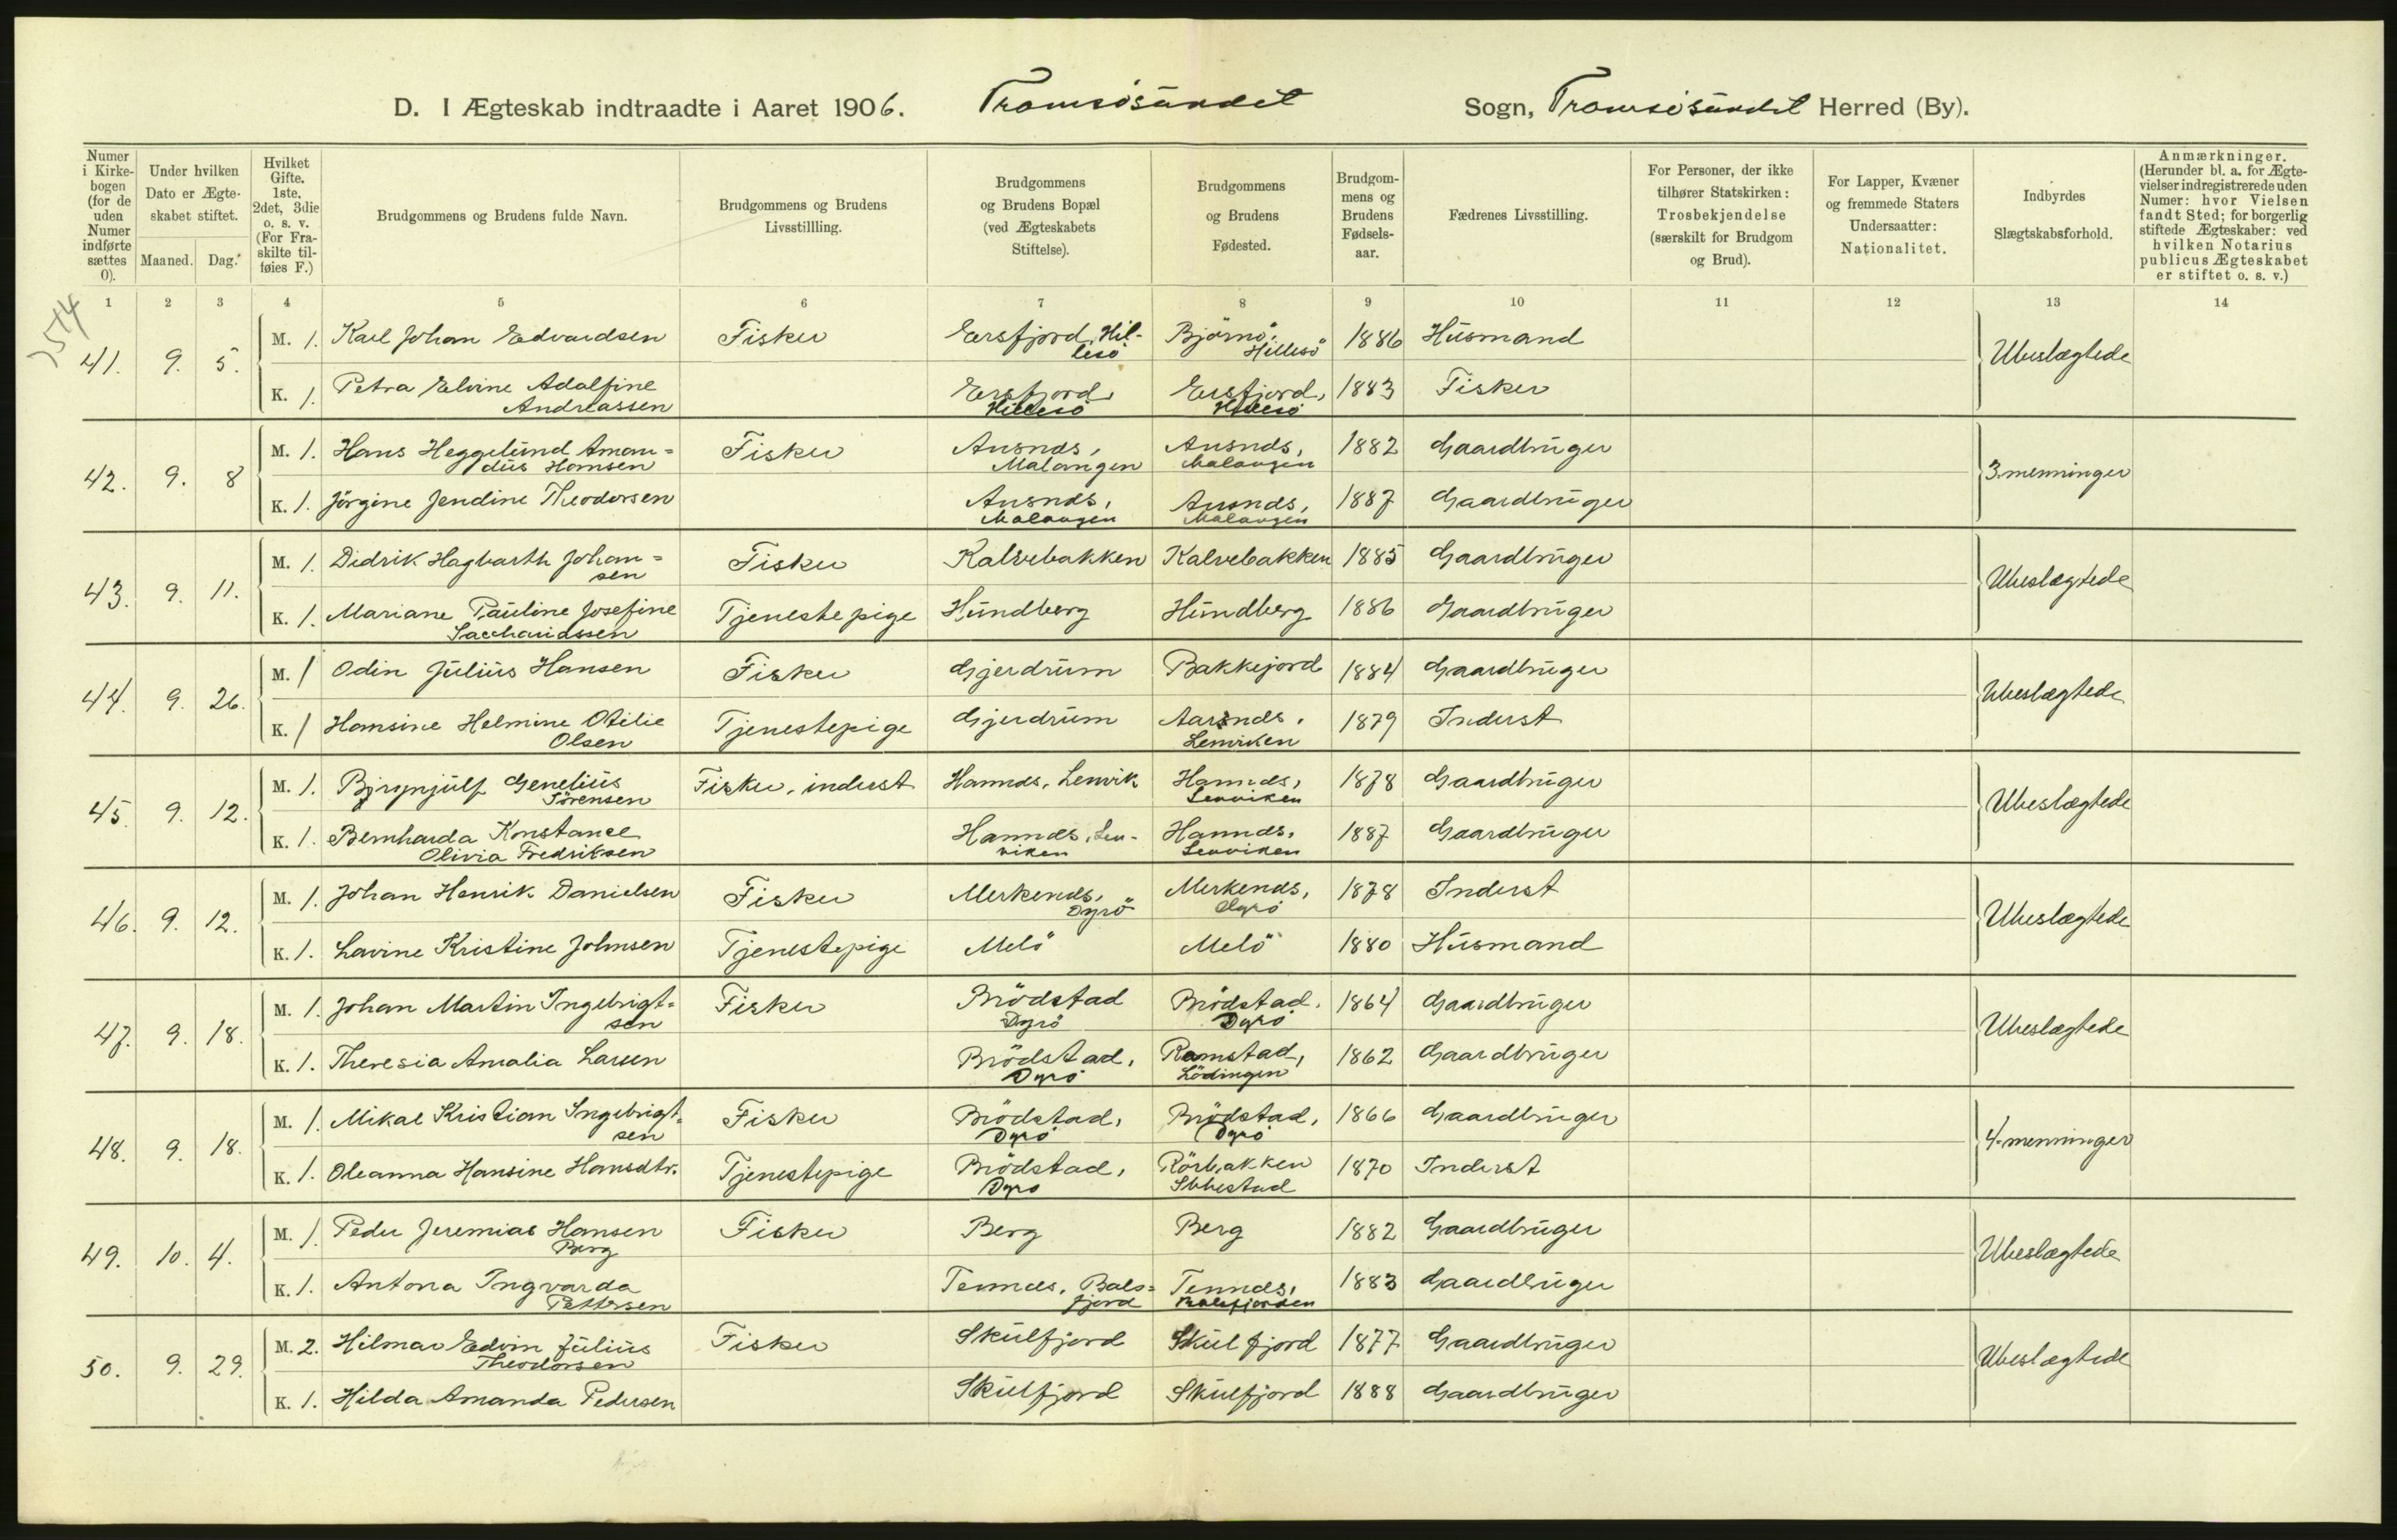 D. I Ægteskab indtraadte i Aaret 1906. Tromsösundet Sogn, Tromsösundet Herred (By).
Numer i Kirke-bogen (for de uden Numer indførte sættes 0). Under hvilken Dato er Ægte-skabet stiftet. Maaned. Dag. Hvilket Gifte. 1ste, 2det, 3die o. s. v. (For Fra-skilte til-føies F.) Brudgommens og Brudens fulde Navn. Brudgommens og Brudens Livsstillling. Brudgommens og Brudens Bopæl (ved Ægteskabets Stiftelse). Brudgommens og Brudens Fødested. Brudgom-mens og Brudens Fødsels-aar. Fædrenes Livsstilling. For Personer, der ikke tilhører Statskirken: Trosbekjendelse (særskilt for Brudgom og Brud). For Lapper, Kvæner og fremmede Staters Undersaatter: Nationalitet. Indbyrdes Slægtskabsforhold. Anmærkninger. (Herunder bl. a. for Ægte-vielser indregistrerede uden Numer: hvor Vielsen fandt Sted; for borgerlig stiftede Ægteskaber: ved hvilken Notarius publicus Ægteskabet er stiftet o. s. v.)
1 2 3 4 5 6 7 8 9 10 11 12 13 14
41. 9. 5. M. 1. Karl Johan Edvardsen Fisker Ersfjord, Hil-lesö Björnö, Hillesö 1886 Husmand Ubeslægtede
K. 1. Petra Elvine Adolfine Andreassen Ersfjord, Hillesö Ersfjord, Hillesö 1883 Fisker
42. 9. 8 M. 1. Hans Heggelund Aman=dus Hansen Fisker Ansnds, Malangen Ansnds, Malangen 1882 Gaardbruger 3-menninger
K. 1. Jörgine Jendine Theodorsen Ansnds, Malangen Ansnds, Malangen 1887 Gaardbruger
43. 9. 11. M. 1. Didrik Hagbarth Johan=sen Fisker Kalvebakken Kalvebakken 1885 Gaardbruger Ubeslægtede
K. 1. Mariane Pauline Josefine Sacchariassen Tjenestepige Hundberg Hundberg 1886 Gaardbruger
44. 9. 26. M. 1 Odin Julius Hansen Fisker Gjerdrum Bakkejord 1884 Gaardbruger Ubeslægtede
K. 1 Hansine Helmine Otilie Olsen Tjenestepige Gjerdrum Aarsnds, Lenviken 1879 Inderst
45. 9. 12. M. 1. Bjrynjulf Genelius Sörensen Fisker, inderst Hannds, Lenvik Hannds, Lenviken 1878 Gaardbruger Ubeslægtede
K. 1. Bernharda Konstance Olivia Fredriksen Hannds, Len-viken Hannds, Lenviken 1887 Gaardbruger
46. 9. 12. M. 1. Johan Henrik Danielsen Fisker Merkends, Dyrö Merkends, Dyrö 1878 Inderst Ubeslægtede
K. 1. Lavine Kristine Johnsen Tjenestepige Melö Melö 1880 Husmand
47. 9. 18. M. 1. Johan Martin Ingebrigt=sen Fisker Brödstad Dyrö Brödstad, Dyrö 1864 Gaardbruger Ubeslægtede
K. 1. Theresia Amalia Larsen Brödstad, Dyrö Ramstad, Lödingen 1862 Gaardbruger
48. 9. 18. M. 1. Mikal Kristian Ingebrigt=sen Fisker Brödstad, Dyrö Brödstad, Dyrö 1866 Gaardbruger 4-menninger
K. 1. Oleanna Hansine Hansdtr. Tjenestepige Brödstad, Dyrö Rörbakken Ibbestad 1870 Inderst
49. 10. 4. M. 1. Peder Jeremias Hansen Berg Fisker Berg Berg 1882 Gaardbruger Ubeslægtede
K. 1. Antona Ingvarda Pettersen Tennds, Bals=fjord Tennds, Balsfjorden 1883 Gaardbruger
50. 9. 29. M. 2. Hilmar Edvin Julius Theodorsen Fisker Skulfjord Skulfjord 1877 Gaardbruger Ubeslægtede
K. 1. Hilda Amanda Pedersen Skulfjord Skulfjord 1888 Gaardbruger